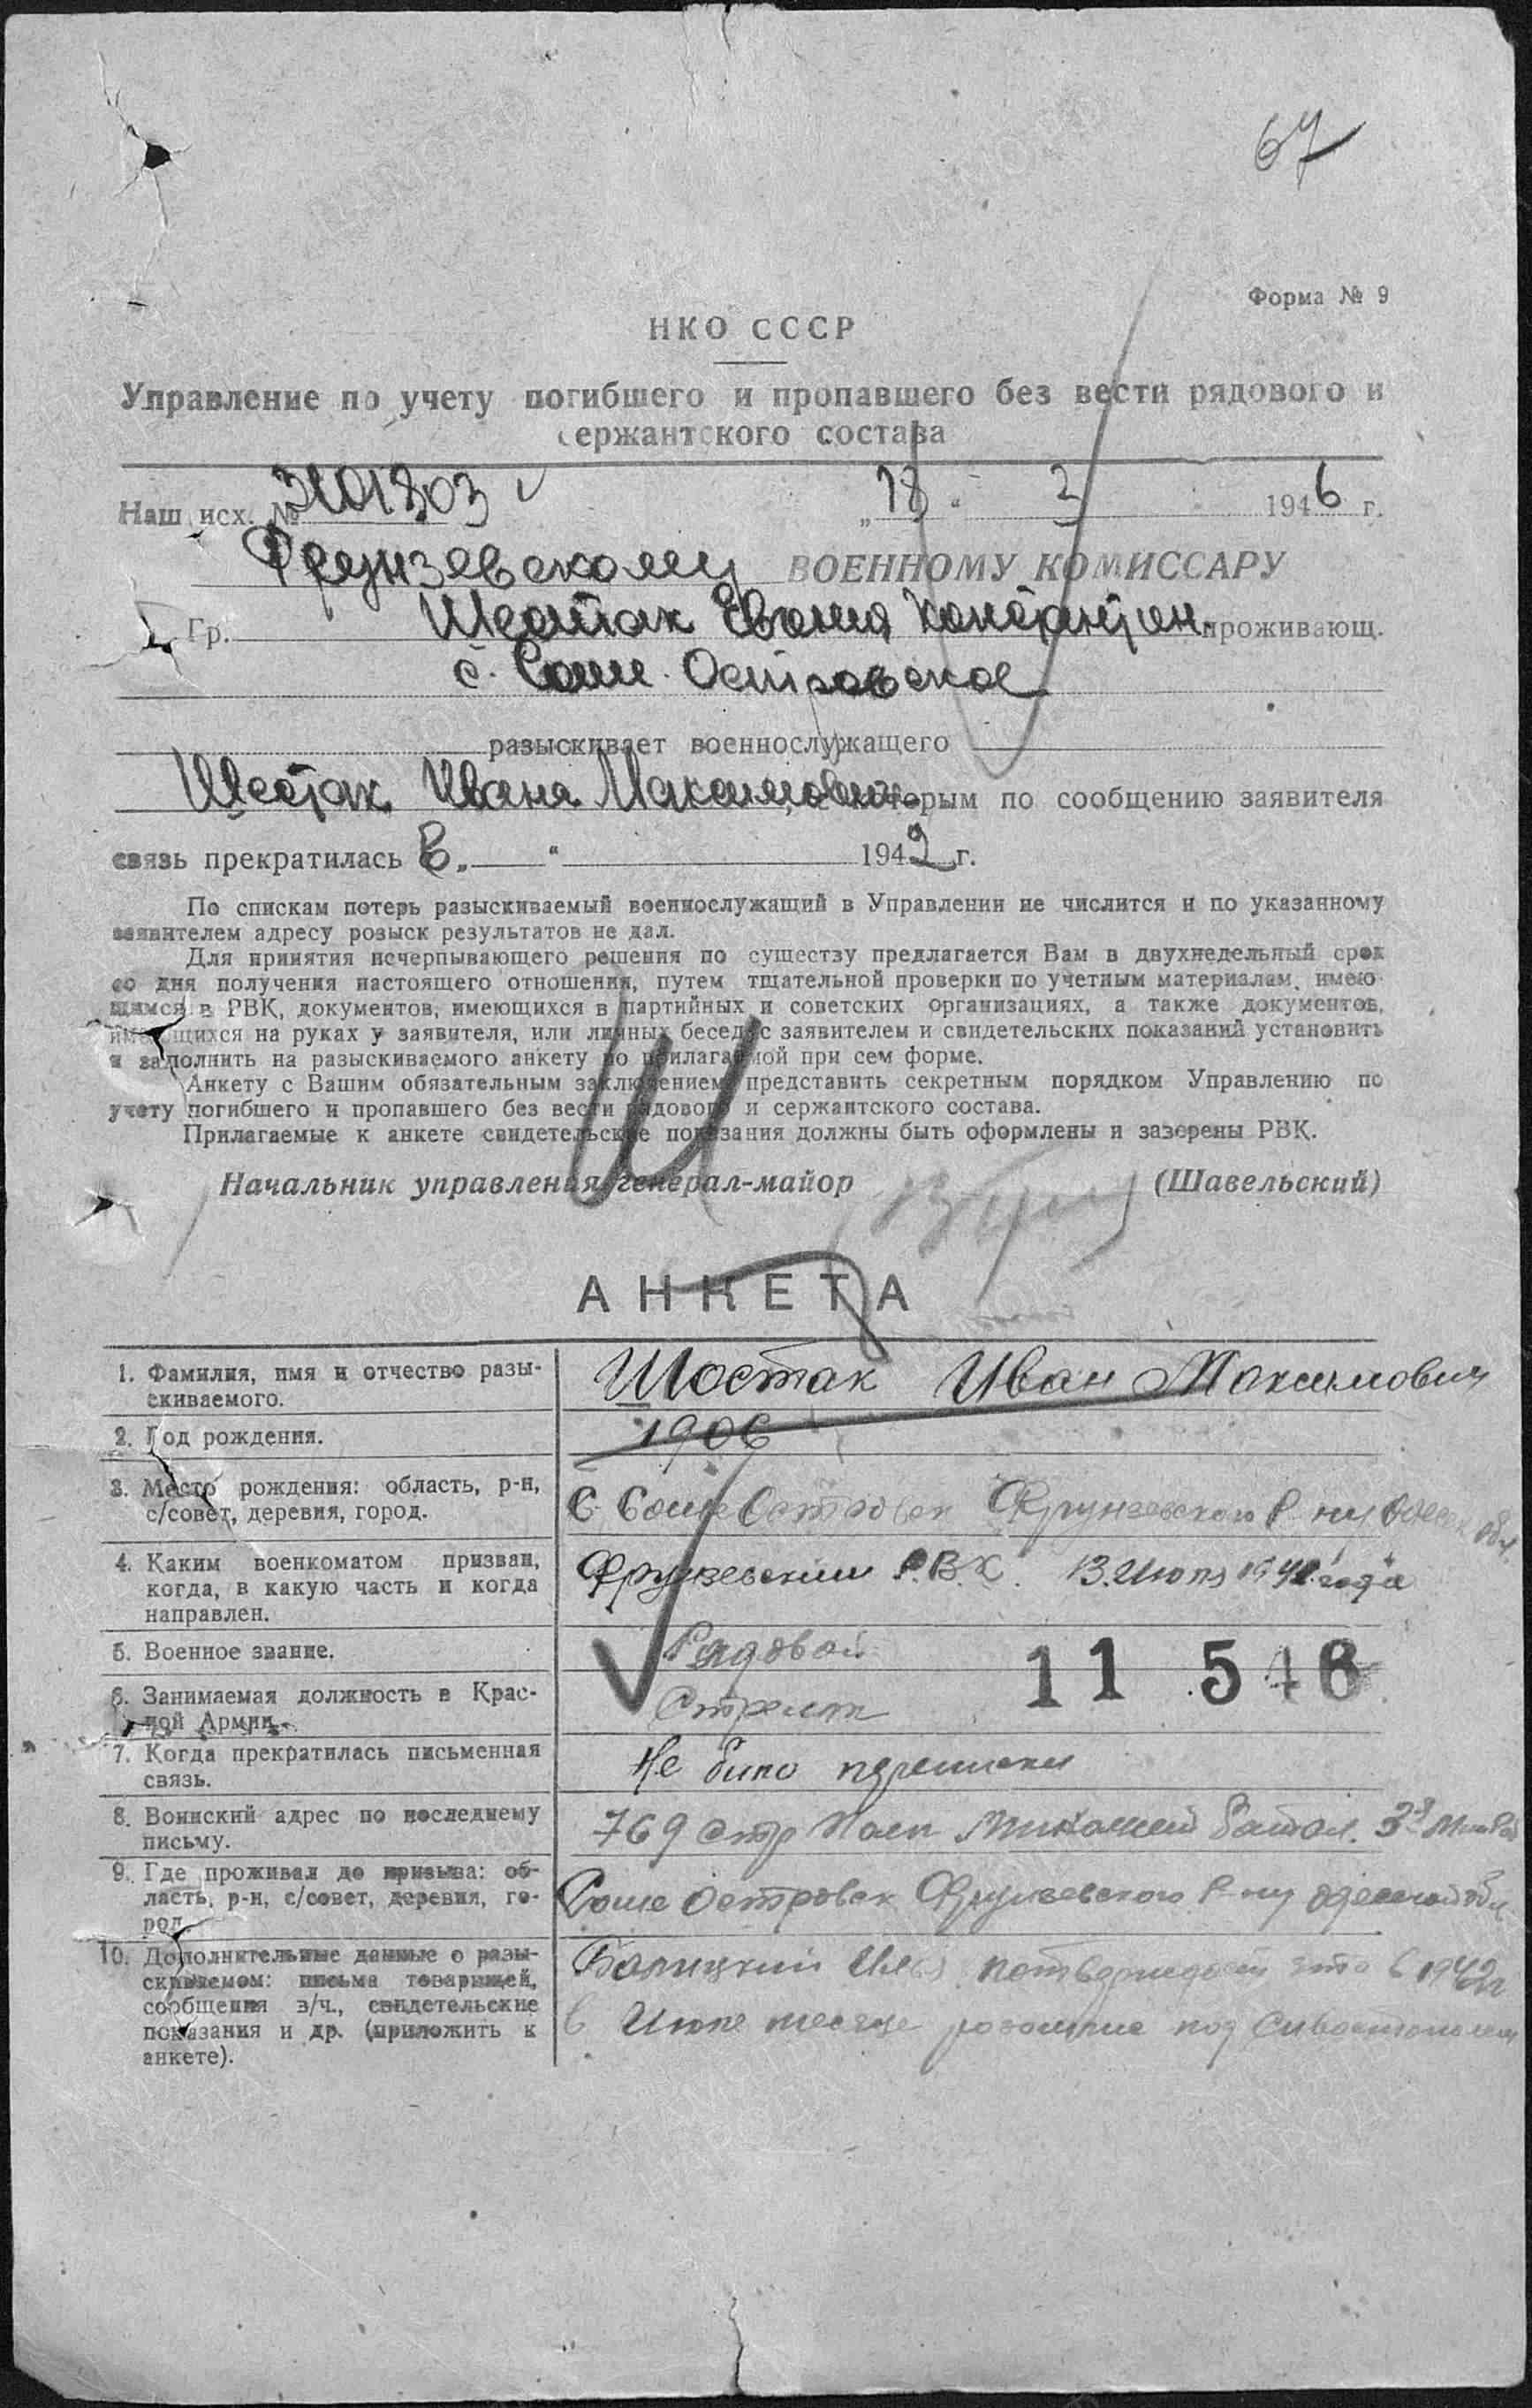 67
Форма № 9
НКО СССР
Управление по учету погибшего и пропавшего без вести рядового и
сержантского состава
Наш исх. № „18" 3 1946 г.
Фрунзевскому ВОЕННОМУ КОМИССАРУ
Гр. Шостак проживающ.
с. Соше-Островское
разыскивает военнослужащего
Шостак Ивана Максимович, с которым по сообщению заявителя
связь прекратилась в „ " 1942 г.
По спискам потерь разыскиваемый военнослужащий в Управлении не числится и по указанному
заявителем адресу розыск результатов не дал.
Для принятия исчерпывающего решения по существу предлагается Вам в двухнедельный срок
со дня получения настоящего отношения, путем тщательной проверки по учетным материалам, имею-
щимся в РВК, документов, имеющихся в партийных и советских организациях, а также документов,
имеющихся на руках у заявителя, или личных бесед с заявителем и свидетельских показаний установить
и заполнить на разыскиваемого анкету по прилагаемой при сем форме.
Анкету с Вашим обязательным заключением представить секретным порядком Управлению по
учету погибшего и пропавшего без вести рядового и сержантского состава.
Прилагаемые к анкете свидетельские показания должны быть оформлены и заверены РВК.
Начальник управления генерал-майор (Шавельский)
АНКЕТА
1. Фамилия, имя и отчество разы-
скиваемого.
Шостак Иван Максимович
2. Год рождения.
1906
3. Место рождения: область, р-н,
с/совет, деревня, город.
с. Соше Островск Фрунзевского р-ну Одеск обл.
4. Каким военкоматом призван,
когда, в какую часть и когда
направлен.
Фрунзевским Р.В.К. В Июля 1941 года
5. Военное звание.
Рядовой
11 546
6. Занимаемая должность в Крас-
ной Армии.
Стрелок
7. Когда прекратилась письменная
связь.
Не било переписки
8. Воинский адрес по последнему
письму.
769 стр Полк батал.
9. Где проживал до призыва: об-
ласть, р-н, с/совет, деревня, го-
род.
Соше Островск Фрунзевского р-ну одеской обл
10. Дополнительные данные о разы-
скиваемом: письма товарищей,
сообщения в/ч., свидетельские
показания и др. (приложить к
анкете).
потверждает што в 1942г
в Июне месяце под Сивостополем